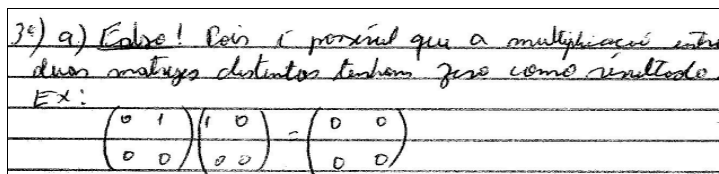 3ª) a) Falso! Pois é possível que a multiplicação entre
duas matrizes distintas tenham zero como resultado.
Ex:
(0 1) (1 0) = (0 0)
(0 0) (0 0) (0 0)